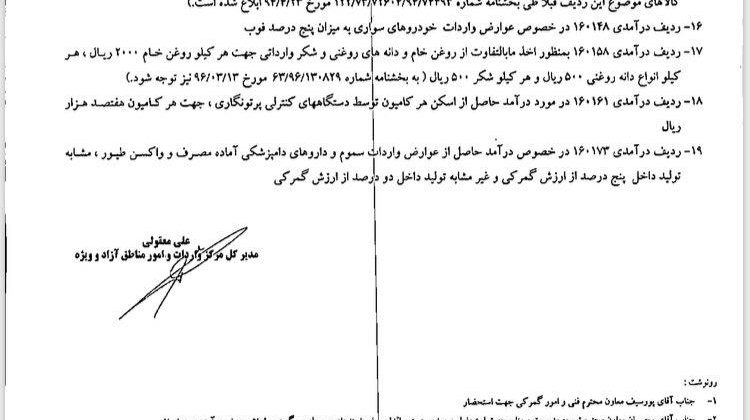 کالاهای موضوع این ردیف قبلا طی بخشنامه شماره مورخ ۹۴/۴/۲۳ ابلاغ شده است.)
۱۶- ردیف درآمدی ۱۶۰۱۴۸ در خصوص عوارض واردات خودروهای سواری به میزان پنج درصد فوب
۱۷- ردیف درآمدی ۱۶۰۱۵۸ بمنظور اخذ مابالتفاوت از روغن خام و دانه های روغنی و شکر وارداتی جهت هر کیلو روغن خام ۲۰۰۰ ریال ، هر
کیلو انواع دانه روغنی ۵۰۰ ریال و هر کیلو شکر ۵۰۰ ریال ( به بخشنامه شماره ۶۳/۹۶/۱۳۰۸۲۹ مورخ ۹۶/۰۳/۱۳ نیز توجه شود.)
۱۸- ردیف درآمدی ۱۶۰۱۶۱ در مورد درآمد حاصل از اسکن هر کامیون توسط دستگاههای کنترلی پرتونگاری ، جهت هر کامیون هفتصد هزار
ریال
۱۹- ردیف درآمدی ۱۶۰۱۷۳ در خصوص درآمد حاصل از عوارض واردات سموم و داروهای دامپزشکی آماده مصرف و واکسن طیور ، مشابه
تولید داخل پنج درصد از ارزش گمرکی و غیر مشابه تولید داخل دو درصد از ارزش گمرکی
علی معقولی
مدیر کل مرکز واردات و امور مناطق آزاد و ویژه
رونرشت :
۱- جناب آقای پورسیف معاون محترم فنی و امور گمرکی جهت استحضار
۲- جناب آقای